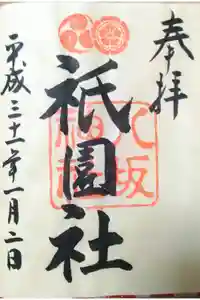 奉拝
八坂神社
祇園社
平成三十一年一月二日